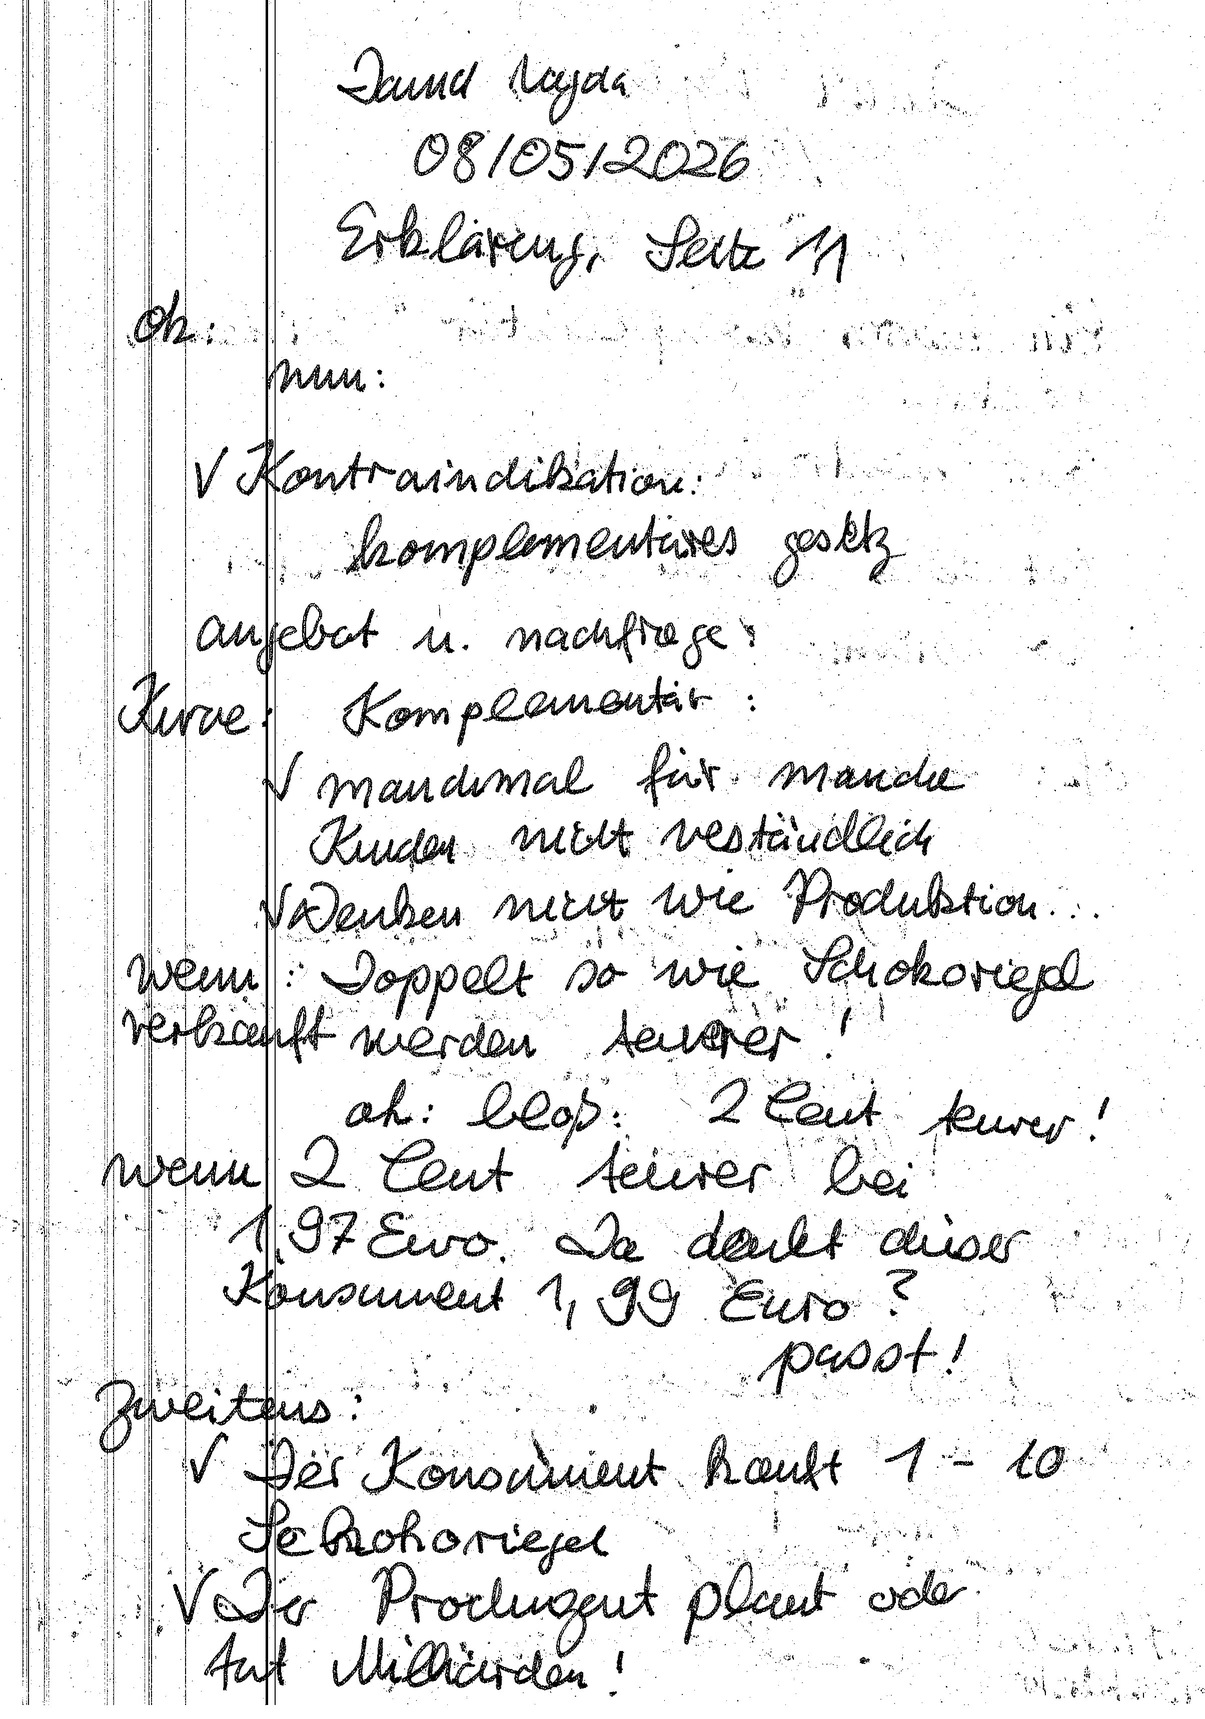 08/05/2026
Erklärung, Seite 11
oh:
nun:
√ Kontraindikation:
komplementäres gesetz
angebot u. nachfrage:
Kurve: Komplementär:
√ manchmal für manche
Kinder nicht veständlich
√ Denken nicht wie Produktion...
wenn: Doppelt so wie Schokoriegel
verkauft werden teurer!
ah: bloß: 2 Cent teurer!
wenn 2 Cent teurer bei
1,97 Euro. Da denkt dieser
Konsument 1,99 Euro?
passt!
Zweitens:
√ Der Konsument kauft 1 - 10
√ Der Produzent plant oder
tut Milliarden!